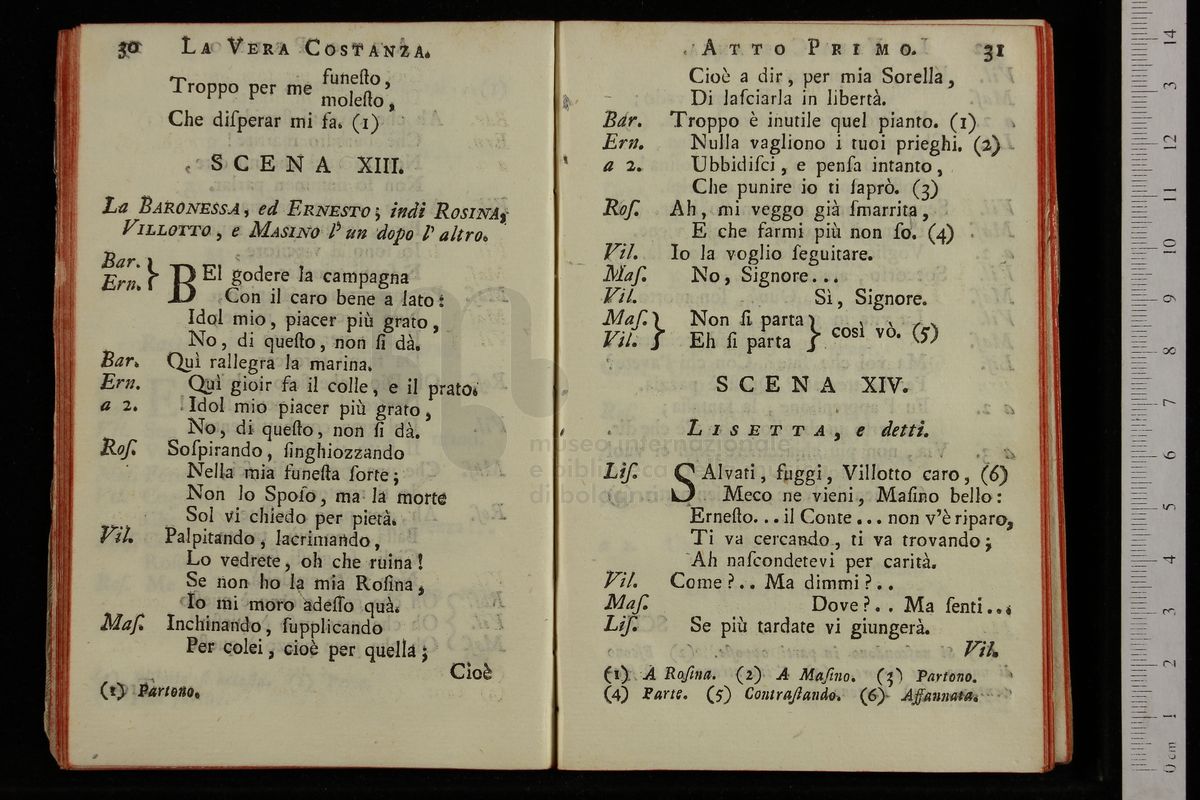 30 LA VERA COSTANZA.
Troppo per me funeſto,
moleſto,
Che diſperar mi fa. (1)
SCENA XIII.
La BARONESSA, ed ERNESTO; indi ROSINA,
VILLOTTO, e MASINO l'un dopo l'altro.
Bar. } BEl godere la campagna
Ern. } Con il caro bene a lato:
Idol mio, piacer più grato,
No, di queſto, non ſi dà.
Bar. Quì rallegra la marina.
Ern. Quì gioir fa il colle, e il prato.
a 2. Idol mio piacer più grato,
No, di queſto, non ſi dà.
Roſ. Soſpirando, ſinghiozzando
Nella mia funeſta ſorte;
Non lo Spoſo, ma la morte
Sol vi chiedo per pietà.
Vil. Palpitando, lacrimando,
Lo vedrete, oh che ruina!
Se non ho la mia Roſina,
Io mi moro adeſſo quà.
Maſ. Inchinando, ſupplicando
Per colei, cioè per quella;
Cioè
(1) Partono.
ATTO PRIMO. 31
Cioè a dir, per mia Sorella,
Di laſciarla in libertà.
Bar. Troppo è inutile quel pianto. (1)
Ern. Nulla vagliono i tuoi prieghi. (2)
a 2. Ubbidiſci, e penſa intanto,
Che punire io ti ſaprò. (3)
Roſ. Ah, mi veggo già ſmarrita,
E che farmi più non ſo. (4)
Vil. Io la voglio ſeguitare.
Maſ. No, Signore...
Vil. Sì, Signore.
Maſ. } Non ſi parta } così vò. (5)
Vil. } Eh ſi parta }
SCENA XIV.
LISETTA, e detti.
Liſ. SAlvati, fuggi, Villotto caro, (6)
Meco ne vieni, Maſino bello:
Erneſto...il Conte... non v'è riparo,
Ti va cercando, ti va trovando;
Ah naſcondetevi per carità.
Vil. Come?.. Ma dimmi?..
Maſ. Dove?.. Ma ſenti...
Liſ. Se più tardate vi giungerà.
Vil.
(1) A Roſina. (2) A Maſino. (3) Partono.
(4) Parte. (5) Contraſtando. (6) Affannata.
museo internazionale
e biblioteca della musica
di bologna
0 cm 1 2 3 4 5 6 7 8 9 10 11 12 13 14